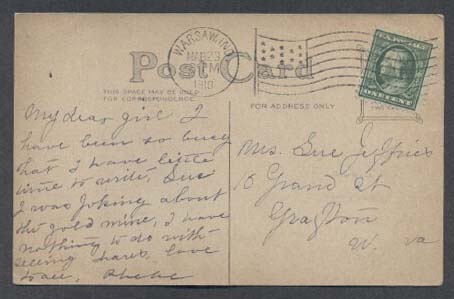 WARSAW, IND.
MAR 23
PM
1910
Post Card
THIS SPACE MAY BE USED
FOR CORRESPONDENCE
FOR ADDRESS ONLY
U.S. POSTAGE
ONE CENT
My dear girl I
have been so busy
that I have little
time to write, Sue
I was joking about
the gold mine, I have
nothing to do with
seeing shares, love
to all, Phebe
Mrs. Sue Jeffries
15 Grand St
Grafton
W. Va